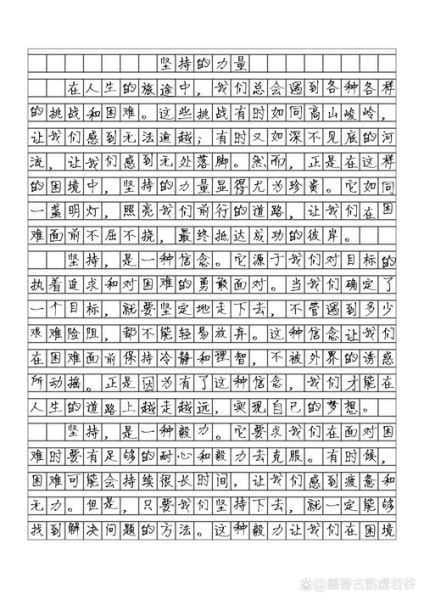 坚持的力量
在人生的旅途中，我们总会遇到各种各样
的挑战和困难。这些挑战有时如同高山峻岭，
让我们感到无法逾越；有时又如深不见底的河
流，让我们感到无处落脚。然而，正是在这样
的困境中，坚持的力量显得尤为珍贵。它如同
一盏明灯，照亮我们前行的道路，让我们在困
难面前不屈不挠，最终抵达成功的彼岸。
坚持，是一种信念。它源于我们对目标的
执着追求和对困难的勇敢面对。当我们确定了
一个目标，就要坚定地走下去，不管遇到多少
艰难险阻，都不能轻易放弃。这种信念让我们
在困难面前保持冷静和理智，不被外界的诱惑
所动摇。正是因为有了这种信念，我们才能在
人生的道路上越走越远，实现自己的梦想。
坚持，是一种毅力。它要求我们在面对困
难时要有足够的耐心和毅力去克服。有时候，
困难可能会持续很长时间，让我们感到疲惫和
无力。但是，只要我们坚持下去，就一定能够
找到解决问题的方法。这种毅力让我们在困境
@魏晋古韵虚若谷